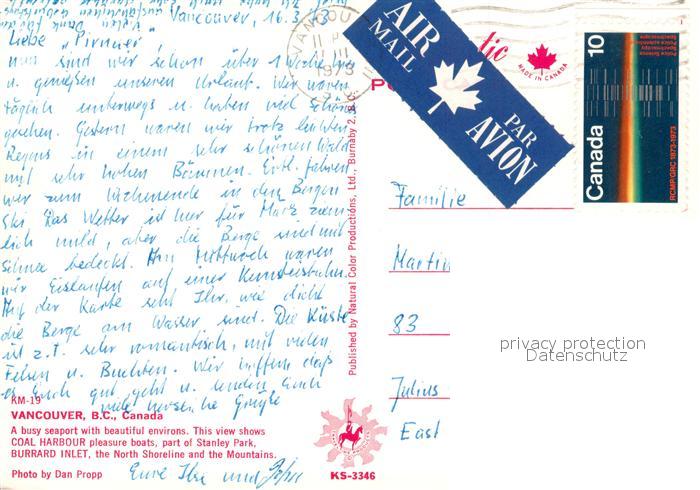 Vancouver, 16.3.73
Liebe
nun sind wir schon über 1 Woche hier
u. genießen unseren Urlaub. Wir waren
täglich unterwegs u. haben viel schönes
gesehen. Gestern waren wir trotz leichten
Regens in einem sehr schönen Wald
mit sehr hohen Bäumen. Evtl. fahren
wir zum Wochenende in den Bergen
Ski. Das Wetter ist hier für März ziem-
lich mild, aber die Berge sind mit
Schnee bedeckt. Am Mittwoch waren
wir Eislaufen auf einer Kunsteisbahn.
Auf der Karte seht Ihr, wie dicht
die Berge am Wasser sind. Die Küste
ist z.T. sehr romantisch, mit vielen
Felsen u. Buchten. Wir hoffen, daß
es Euch gut geht u. senden Euch
viele herzliche Grüße
Eure Ilse und
KM-19
VANCOUVER, B.C., Canada
A busy seaport with beautiful environs. This view shows
COAL HARBOUR pleasure boats, part of Stanley Park,
BURRARD INLET, the North Shoreline and the Mountains.
Photo by Dan Propp
KS-3346
Published by Natural Color Productions, Ltd., Burnaby 2, B.
VANCOU
1973
AIR
MAIL
PAR
AVION
tic
MADE IN CANADA
10
Canada
RCMP/GRC 1873-1973
Familie
Martin
83
Julius
East
privacy protection
Datenschutz